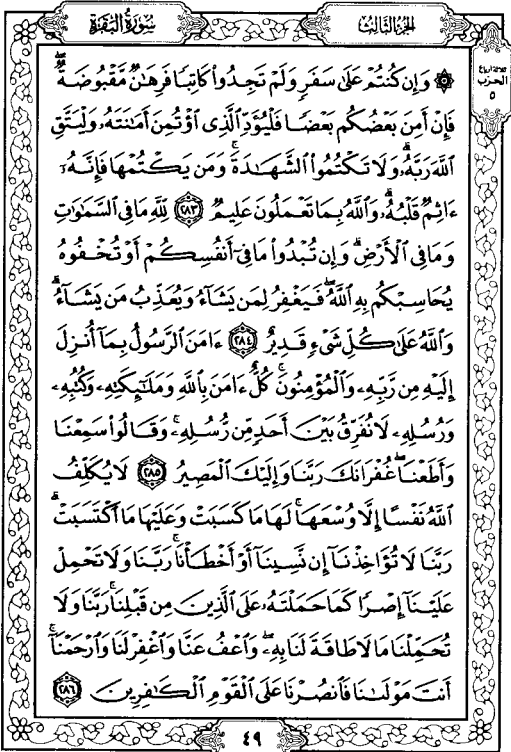 سُورَةُ البَقَرَةِ
الجُزءُ الثَّالِثُ
ثلاثة أرباع
الحزب
٥
۞ وَإِن كُنتُمْ عَلَىٰ سَفَرٍ وَلَمْ تَجِدُوا۟ كَاتِبًا فَرِهَـٰنٌ مَّقْبُوضَةٌ ۖ
فَإِنْ أَمِنَ بَعْضُكُم بَعْضًا فَلْيُؤَدِّ ٱلَّذِى ٱؤْتُمِنَ أَمَـٰنَتَهُۥ وَلْيَتَّقِ
ٱللَّهَ رَبَّهُۥ ۗ وَلَا تَكْتُمُوا۟ ٱلشَّهَـٰدَةَ ۚ وَمَن يَكْتُمْهَا فَإِنَّهُۥٓ
ءَاثِمٌ قَلْبُهُۥ ۗ وَٱللَّهُ بِمَا تَعْمَلُونَ عَلِيمٌ ٢٨٣ لِّلَّهِ مَا فِى ٱلسَّمَـٰوَٰتِ
وَمَا فِى ٱلْأَرْضِ ۗ وَإِن تُبْدُوا۟ مَا فِىٓ أَنفُسِكُمْ أَوْ تُخْفُوهُ
يُحَاسِبْكُم بِهِ ٱللَّهُ ۖ فَيَغْفِرُ لِمَن يَشَآءُ وَيُعَذِّبُ مَن يَشَآءُ ۗ
وَٱللَّهُ عَلَىٰ كُلِّ شَىْءٍ قَدِيرٌ ٢٨٤ ءَامَنَ ٱلرَّسُولُ بِمَآ أُنزِلَ
إِلَيْهِ مِن رَّبِّهِۦ وَٱلْمُؤْمِنُونَ ۚ كُلٌّ ءَامَنَ بِٱللَّهِ وَمَلَـٰٓئِكَتِهِۦ وَكُتُبِهِۦ
وَرُسُلِهِۦ لَا نُفَرِّقُ بَيْنَ أَحَدٍ مِّن رُّسُلِهِۦ ۚ وَقَالُوا۟ سَمِعْنَا
وَأَطَعْنَا ۖ غُفْرَانَكَ رَبَّنَا وَإِلَيْكَ ٱلْمَصِيرُ ٢٨٥ لَا يُكَلِّفُ
ٱللَّهُ نَفْسًا إِلَّا وُسْعَهَا ۚ لَهَا مَا كَسَبَتْ وَعَلَيْهَا مَا ٱكْتَسَبَتْ ۗ
رَبَّنَا لَا تُؤَاخِذْنَآ إِن نَّسِينَآ أَوْ أَخْطَأْنَا ۚ رَبَّنَا وَلَا تَحْمِلْ
عَلَيْنَآ إِصْرًا كَمَا حَمَلْتَهُۥ عَلَى ٱلَّذِينَ مِن قَبْلِنَا ۚ رَبَّنَا وَلَا
تُحَمِّلْنَا مَا لَا طَاقَةَ لَنَا بِهِۦ ۖ وَٱعْفُ عَنَّا وَٱغْفِرْ لَنَا وَٱرْحَمْنَآ ۚ
أَنتَ مَوْلَىٰنَا فَٱنصُرْنَا عَلَى ٱلْقَوْمِ ٱلْكَـٰفِرِينَ ٢٨٦
٤٩